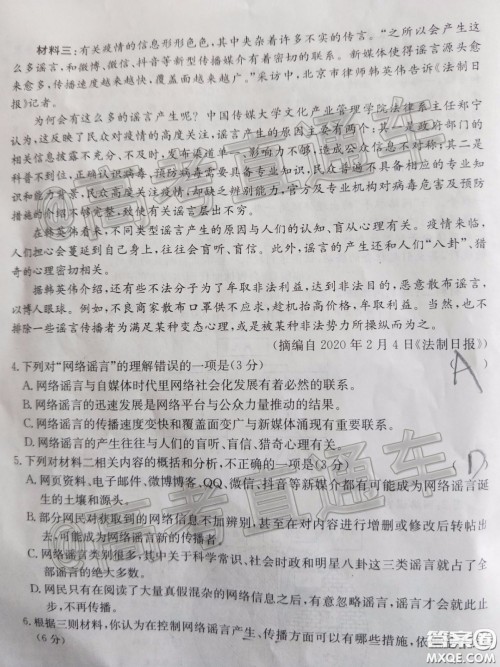 材料三:有关疫情的信息形形色色,其中夹杂着许多不实的传言。“之所以会产生这
么多谣言,和微博、微信、抖音等新型传播媒介有着密切的联系。新媒体使得谣言源头愈
来愈多,传播速度越来越快,覆盖面越来越广。”采访中,北京市律师韩英伟告诉《法制日
报》记者。
为何会有这么多的谣言产生呢?中国传媒大学文化产业管理学院法律系主任郑宁
认为,这反映了民众对疫情的高度关注,谣言产生的原因主要有两个:其一是政府部门的
相关信息披露不充分、不及时,发布渠道单一、影响力不够,造成公众信息不对称;其二是
科普不到位,正确认识病毒、预防病毒需要具备专业知识,民众普遍不具备相应的专业知
识和能力背景,民众高度关注疫情,却缺乏辨别能力,官方及专业机构对病毒危害及预防
措施的介绍不够完整,致使有关谣言层出不穷。
在韩英伟看来,不同类型谣言产生的原因与人们的认知、盲从心理有关。疫情来临,
人们担心会蔓延到自己身上,往往会盲听、盲信。此外,谣言的产生还和人们“八卦”、猎
奇的心理密切相关。
据韩英伟介绍,还有些不法分子为了牟取非法利益,达到非法目的,恶意散布谣言,
以博人眼球。例如,不良商家散布口罩供不应求,趁机抬高价格,牟取利益。当然,也不
排除一些谣言传播者为满足某种变态心理,或是被某种非法势力所操纵而为之。
(摘编自2020年2月4日《法制日报》)
4.下列对“网络谣言”的理解错误的一项是(3分) ( A )
A.网络谣言与自媒体时代里网络社会化发展有着必然的联系。
B.网络谣言的迅速发展是网络平台与公众力量推动的结果。
C.网络谣言的传播速度变快和覆盖面变广与新媒体涌现有重要联系。
D.网络谣言的产生往往与人们的盲听、盲信、猎奇心理有关。
5.下列对材料二相关内容的概括和分析,不正确的一项是(3分) ( D )
A.网页资料、电子邮件、微博博客、QQ、微信、抖音等新媒介都有可能成为网络谣言诞
生的土壤和源头。
B.部分网民对获取到的网络信息不加辨别,甚至在对内容进行增删或修改后转帖出
去,可能成为网络谣言新的源头。
C.网络谣言类别很多,其中关于科学常识、社会时政和明星八卦这三类就占了全
部谣言的绝大多数。
D.网民只有在阅读了大量真假混杂的网络信息之后,有意忽略谣言,谣言才会就此止
步,不再传播。
6.根据三则材料,你认为在控制网络谣言产生、传播方面可以有哪些措施,
(6分)
高考直通车
高考直通车
答案圈
MXQE.COM